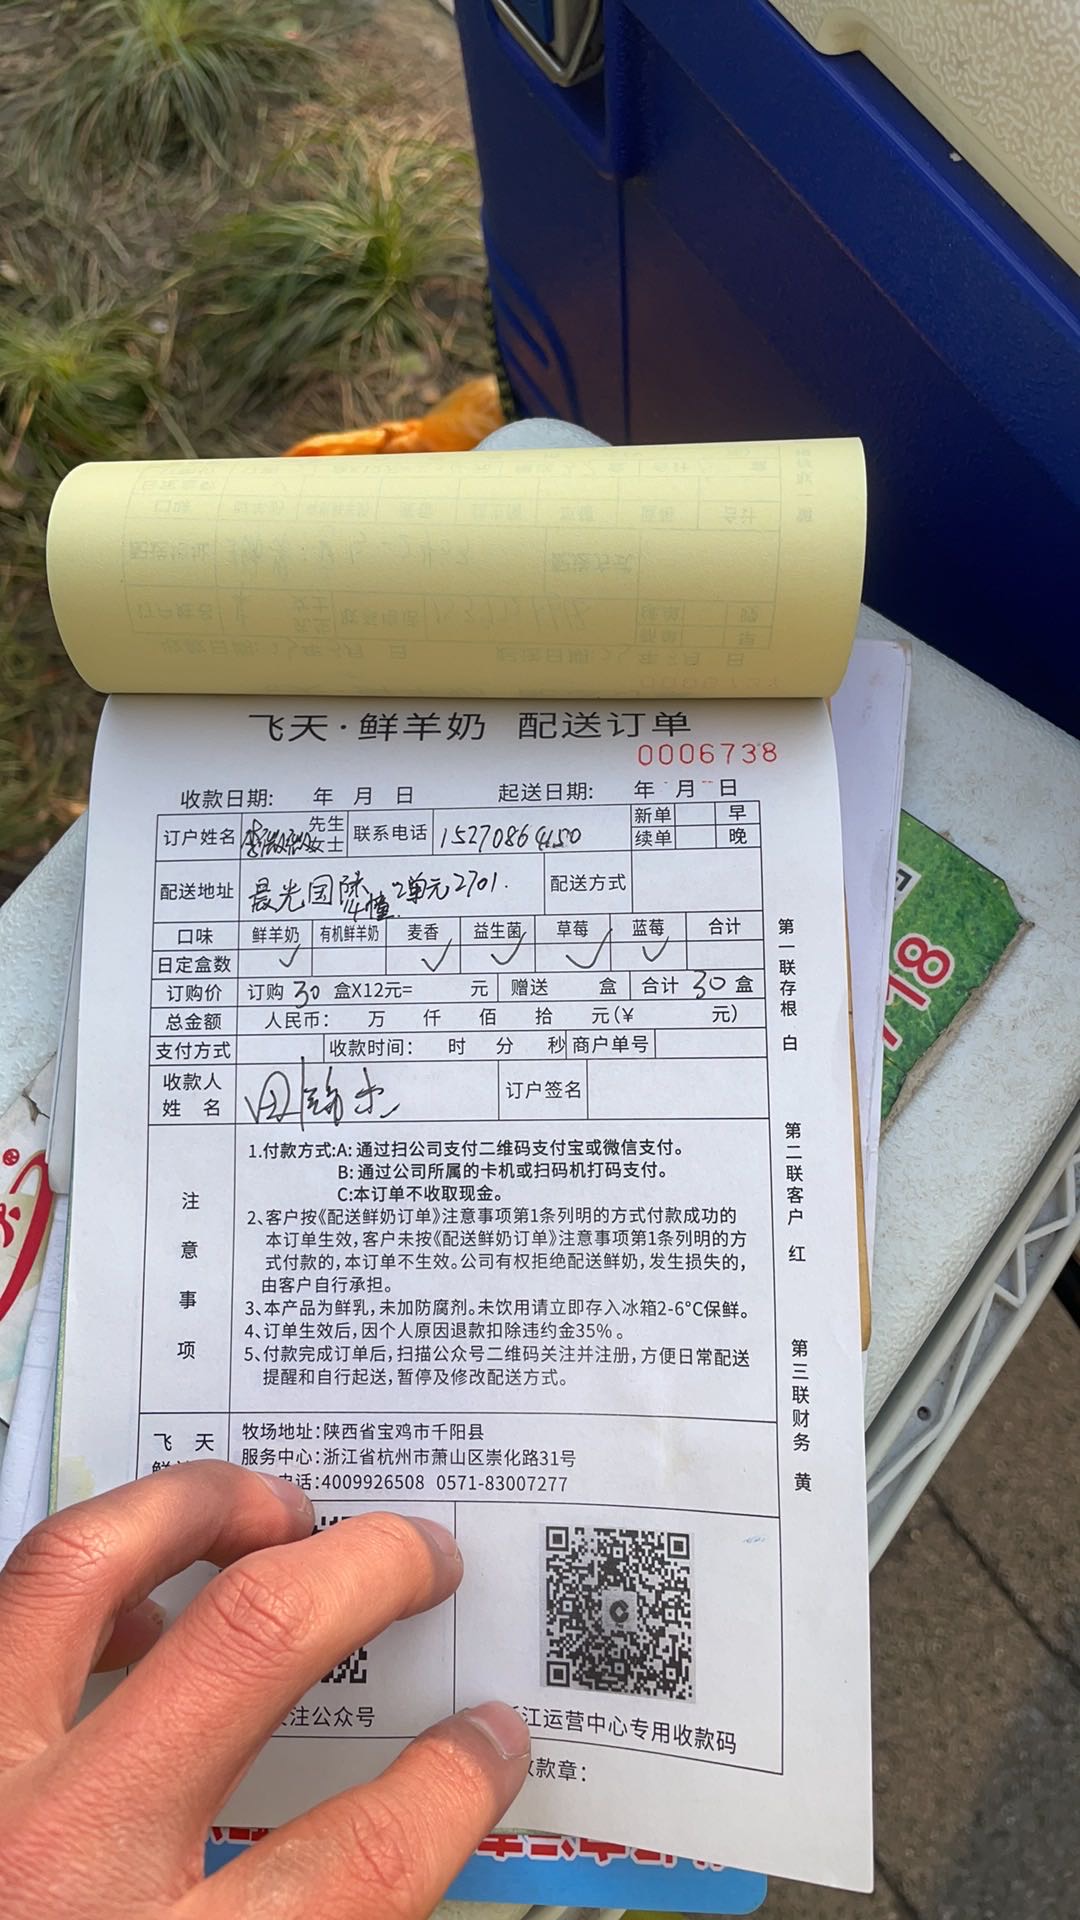 飞天·鲜羊奶 配送订单
0006738
收款日期: 年 月 日 起送日期: 年 月 日
订户姓名 先生 女士 联系电话 15270864150 新单 早
续单 晚
配送地址 晨光国际 4幢 2单元2701. 配送方式
口味 鲜羊奶 有机鲜羊奶 麦香 益生菌 草莓 蓝莓 合计
日定盒数 ✓ ✓ ✓ ✓ ✓
订购价 订购 30 盒X12元= 元 赠送 盒 合计 30 盒
总金额 人民币: 万 仟 佰 拾 元(¥ 元)
支付方式 收款时间: 时 分 秒 商户单号
收款人
姓 名 订户签名
注意事项
1.付款方式:A: 通过扫公司支付二维码支付宝或微信支付。
B: 通过公司所属的卡机或扫码机打码支付。
C:本订单不收取现金。
2、客户按《配送鲜奶订单》注意事项第1条列明的方式付款成功的
本订单生效,客户未按《配送鲜奶订单》注意事项第1条列明的方
式付款的,本订单不生效。公司有权拒绝配送鲜奶,发生损失的,
由客户自行承担。
3、本产品为鲜乳,未加防腐剂。未饮用请立即存入冰箱2-6°C保鲜。
4、订单生效后,因个人原因退款扣除违约金35%。
5、付款完成订单后,扫描公众号二维码关注并注册,方便日常配送
提醒和自行起送,暂停及修改配送方式。
飞 天
牧场地址:陕西省宝鸡市千阳县
服务中心:浙江省杭州市萧山区崇化路31号
电话:4009926508 0571-83007277
注公众号
江运营中心专用收款码
款章:
第一联存根 白
第二联客户 红
第三联财务 黄
118